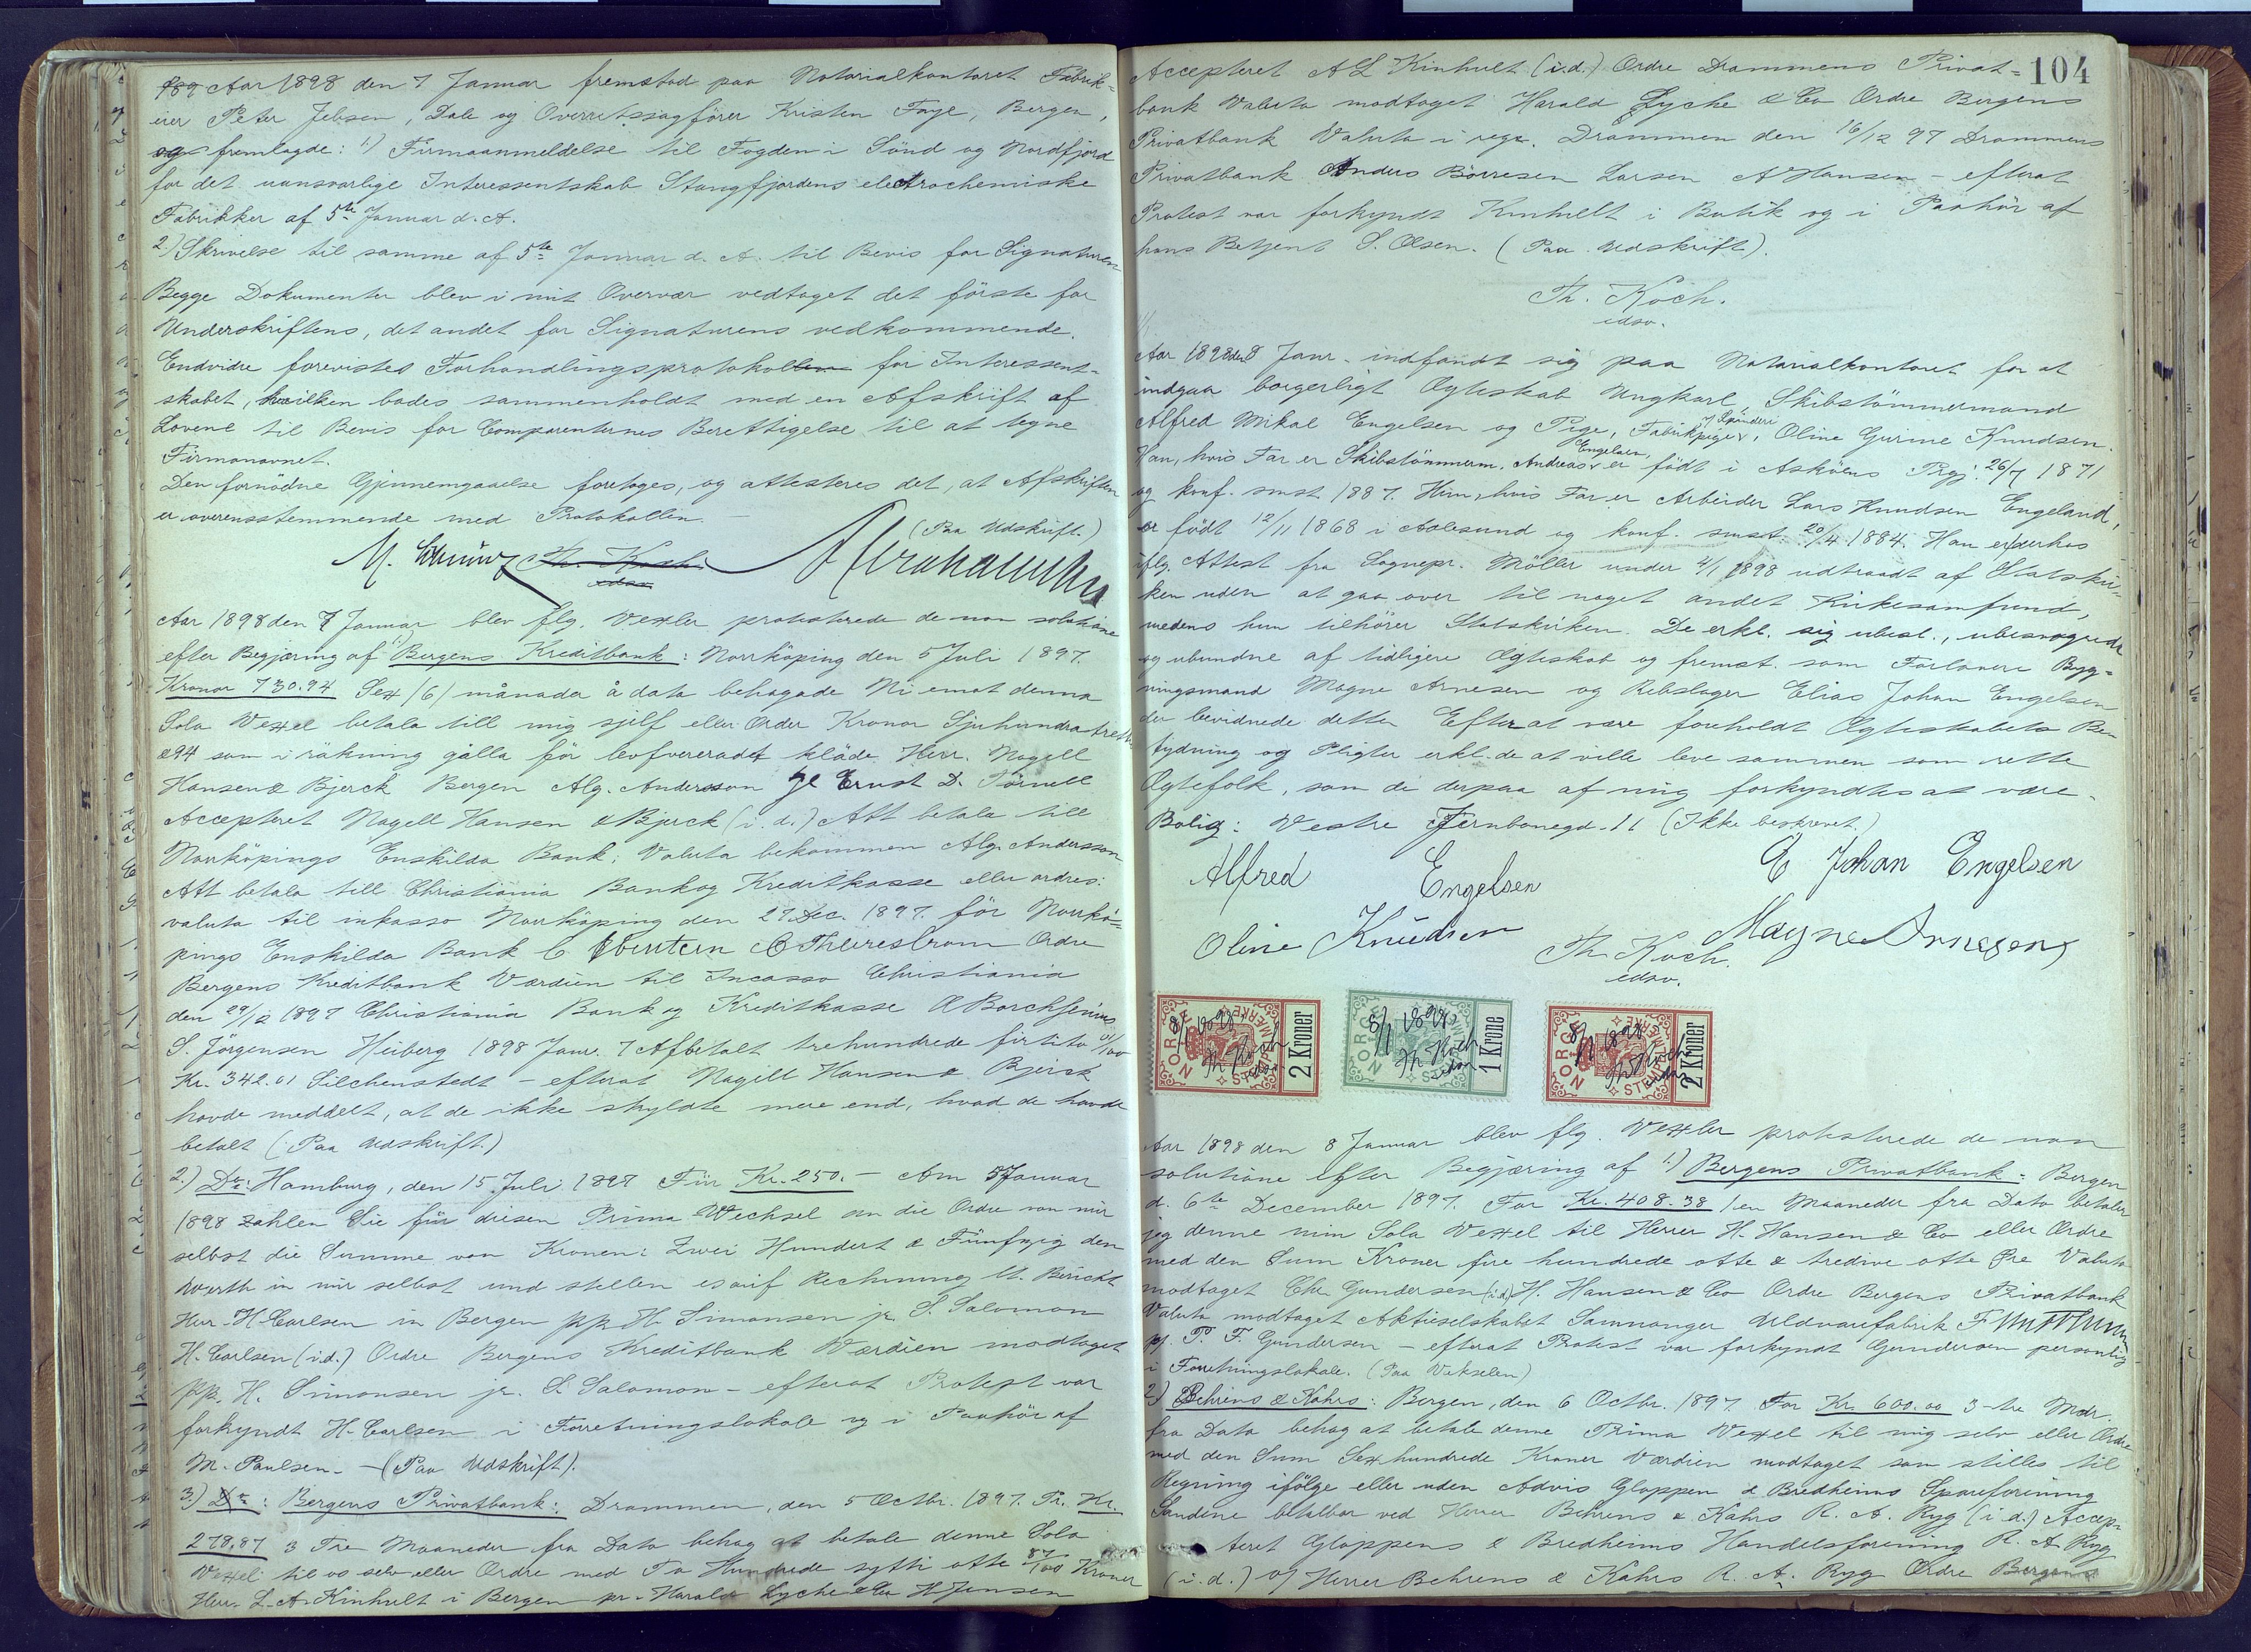 Aar 1898 den 7 Januar fremstod paa Notarialkontoret Fabrik-
eier Peter Jebsen, Dale og Overretssagfører Kristen Faye, Bergen,
og fremlagde: 1) Firmaanmeldelse til Fogden i Sönd og Nordfjord
for det uansvarlige Interessentskab Stangfjordens electrochemiske
Fabrikker af 5te Januar d. A.
2.) Skrivelse til samme af 5te Januar d. A. til Bevis for Signaturen
Begge Dokumenter blev i mit Overvær vedtaget det förste for
Underskriftens, det andet for Signaturens vedkommende.
Endvidre forevistes Forhandlingsprotokollen for Interessent-
skabet, hvilken bades sammenholdt med en Afskrift af
Lovene til Bevis for Comparenternes Berettigelse til at tegne
Firmanavnet.
Den fornødne Gjennemgaaelse foretoges, og attesteres det, at Afskriften
er overensstemmende med Protokollen.
(Paa Udskrift.)
Th. Koch
edsv.
Aar 1898 den 7 Januar blev flg. Vexler protesterede de non solutione
efter Begjæring af 1) Bergens Kreditbank: Norrköping den 5 Juli 1897.
Kronor 730.94 Sex /6/ månader å dato behagade Ni emot denna
Sola Vexel betala till mig sjelf eller Order Kronor Sjuhundratretti
& 94 som i räkning gälla för levfvereradt kläde Herr. Nagell
Hansen & Bjerck Bergen Alg. Andersson gl Ernst D. Törnell
Accepteret Nagell Hansen & Bjerck (i. d.) Att betala till
Norrköpings Enskilda Bank; Valuta bekommen Alg. Andersson
Att betala till Christiania Bank og Kreditkasse eller ordres:
valuta til inkasso Norrköping den 27 Dec. 1897. för Norrkö-
pings Enskilda Bank C Ordre
Bergens Kreditbank Værdien til Incasso Christiania
den 29/12 1897 Christiania Bank og Kreditkasse O Borchsenius
S. Jörgensen Heiberg 1898 Janr. 7 Afbetalt trehundrede firtito 01/100
Kr. 342.01 Silchenstedt – efterat Nagell Hansen & Bjerck
havde meddelt, at de ikke skyldte mere end, hvad de havde
betalt (Paa Udskrift.)
2.) Do: Hamburg, den 15 Juli 1897 Für Kr. 250.– Am 5 Januar
1898 zahlen Sie für diesen Prima Wechsel an die Ordre von mir
selbst die Summe von Kronen: Zwei Hundert & Fünfzig den
Werth in mir selbst und stellen es auf Rechnung lt. Bericht
Herr H. Carlsen in Bergen pp. H. Simonsen jr. S. Salomon
H. Carlsen (i.d.) Ordre Bergens Kreditbank Værdien modtaget
pp. H. Simonsen jr. S. Salomon – efterat Protest var
forkyndt H. Carlsen i Forretningslokale og i Paahör af
M. Paulsen. – (Paa Udskrift).
3.) Do: Bergens Privatbank: Drammen, den 5 Octbr. 1897. Fr. Kr.
278.87 3 Tre Maaneder fra Dato behag at betale denne Sola
Vexel til os selv eller Ordre med To Hundrede sytti otte 87/100 Kroner
Herr. L. A. Kinhult i Bergen pr. Harald Lyche & Co H Jensen
104
Accepteret A L Kinhult (i.d.) Ordre Drammens Privat-
bank Valuta modtaget Harald Lyche & Co Ordre Bergens
Privatbank Valuta i regn. Drammen den 16/12 97 Drammens
Privatbank Anders Börresen Larsen A Hansen – efterat
Protest var forkyndt Kinhult i Butik og i Paahör af
hans Betjent S. Olsen. (Paa Udskrift).
Th. Koch.
edsv.
Aar 1898 den 8 Janr. indfandt sig paa Notarialkontoret for at
indgaa borgerligt Ægteskab Ungkarl, Skibstömmermand
Alfred Mikal Engelsen og Pige, Fabrikpige, Oline Gurine Knudsen.
Han, hvis Far er Skibstömmerm. Andreas Engelsen, er födt i Asköens Prgj. 26/7 1871
og konf. smst 1887. Hun, hvis Far er Arbeider Lars Knudsen Engeland,
er födt 12/11 1868 i Aalesund og konf. smst. 20/4 1884. Han er derhos
iflg. Attest fra Sognepr. Möller under 4/1 1898 udtraadt af Statskir-
ken uden at gaa over til noget andet Kirkesamfund,
medens hun tilhörer Statskirken. De erkl. sig ubesl., ubesvogrede
og ubundne af tidligere Ægteskab og fremst. som Forlovere Byg-
ningsmand Magne Arnesen og Rebslager Elias Johan Engelsen
der bevidnede dette. Efter at være foreholdt Ægteskabets Be-
tydning og Pligter erkl. de at ville leve sammen som rette
Ægtefolk, som de derpaa af mig forkyndtes at være.
Bolig: Vestre Jernbanegd. 11 (Ikke beskrevet.)
Alfred Engelsen E Johan Engelsen
Oline Knudsen Magne Arnesen
Th. Koch.
edsv.
NORGE STEMPELMÆRKE 2 Kroner 8/1 1898 Th Koch edsv
NORGE STEMPELMÆRKE 1 Krone 8/1 1898 Th Koch edsv
NORGE STEMPELMÆRKE 2 Kroner 8/1 1898 Th Koch edsv
Aar 1898 den 8 Januar blev flg. Vexler protesterede de non
solutione efter Begjæring af 1.) Bergens Privatbank: Bergen
d. 6te December 1897. For Kr. 408.38 1 en Maaneder fra Dato betaler
jeg denne min Sola Vexel til Herrer H. Hansen & Co eller Ordre
med den Sum Kroner fire hundrede otte & tredive otte Öre Valuta
modtaget Chr. Gundersen (i.d.) H. Hansen & Co Ordre Bergens Privatbank
Valuta modtaget Aktieselskabet Samnanger Uldvarefabrik
P. F. Gundersen – efterat Protest var forkyndt Gundersen personlig
i Forretningslokale. (Paa Vekselen)
2) Behrens & Kahrs: Bergen, den 6 Octbr. 1897. For Kr. 600.00 3-tre Mdr.
fra Dato behag at betale denne Prima Vexel til mig selv eller Ordre
med den Sum Sexhundrede Kroner Værdien modtaget som stilles til
Regning ifölge eller uden Advis Gloppen & Bredheims Spareforening
Sandene betalbar ved Herrer Behrens & Kahrs R. A. Ryg (i.d.) Accep-
teret Gloppens & Bredheims Handelsforening R. A. Ryg
(i.d.) o/ Herrer Behrens & Kahrs R. A. Ryg Ordre Bergens